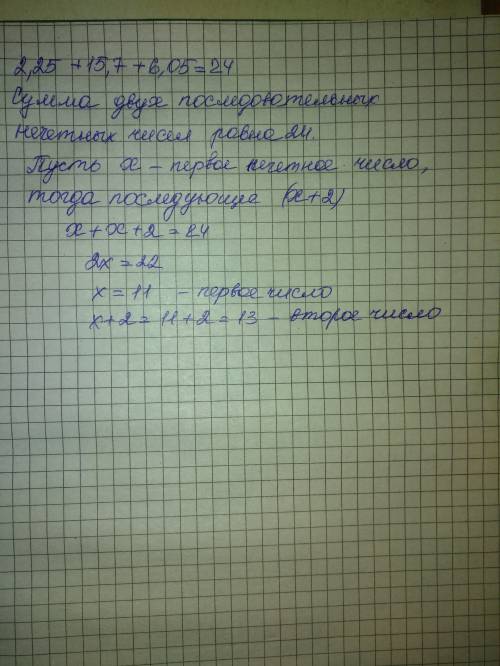 2,25 + 15,7 + 6,05 = 24
Сумма двух последовательных
нечетных чисел равна 24.
Пусть x - первое нечетное число,
тогда последующие (x+2)
x + x + 2 = 24
2x = 22
x = 11 - первое число
x+2 = 11+2 = 13 - второе число